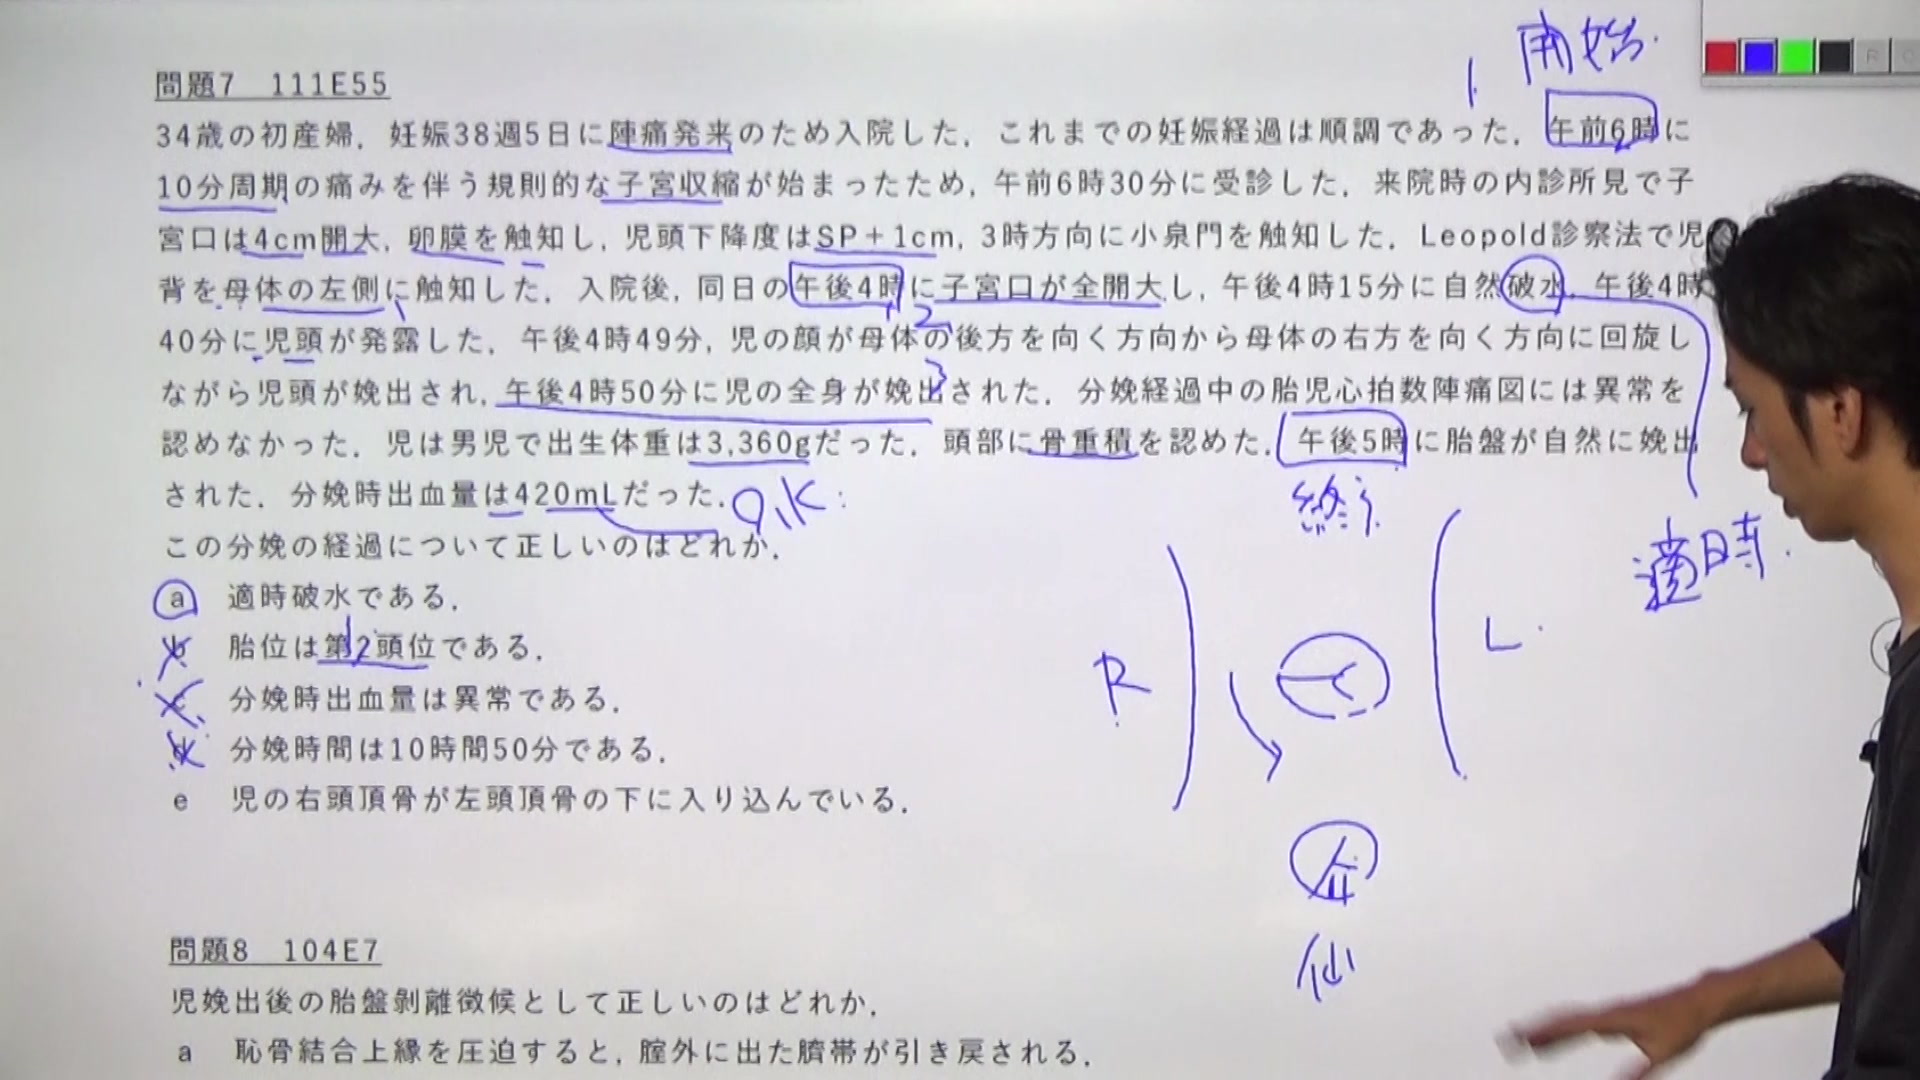 開始.
問題7 111E55
34歳の初産婦．妊娠38週5日に陣痛発来のため入院した．これまでの妊娠経過は順調であった．午前6時に
10分周期の痛みを伴う規則的な子宮収縮が始まったため，午前6時30分に受診した．来院時の内診所見で子
宮口は4cm開大，卵膜を触知し，児頭下降度はSP＋1cm，3時方向に小泉門を触知した．Leopold診察法で児
背を母体の左側に触知した．入院後，同日の午後4時に子宮口が全開大し，午後4時15分に自然破水，午後4時
40分に児頭が発露した．午後4時49分，児の顔が母体の後方を向く方向から母体の右方を向く方向に回旋し
ながら児頭が娩出され，午後4時50分に児の全身が娩出された．分娩経過中の胎児心拍数陣痛図には異常を
認めなかった．児は男児で出生体重は3,360gだった．頭部に骨重積を認めた．午後5時に胎盤が自然に娩出
された．分娩時出血量は420mLだった．O,K
終了
この分娩の経過について正しいのはどれか．
適時.
a 適時破水である．
b 胎位は第2頭位である．
R L.
c 分娩時出血量は異常である．
d 分娩時間は10時間50分である．
e 児の右頭頂骨が左頭頂骨の下に入り込んでいる．
仙
問題8 104E7
児娩出後の胎盤剝離徴候として正しいのはどれか．
a 恥骨結合上縁を圧迫すると，腟外に出た臍帯が引き戻される．